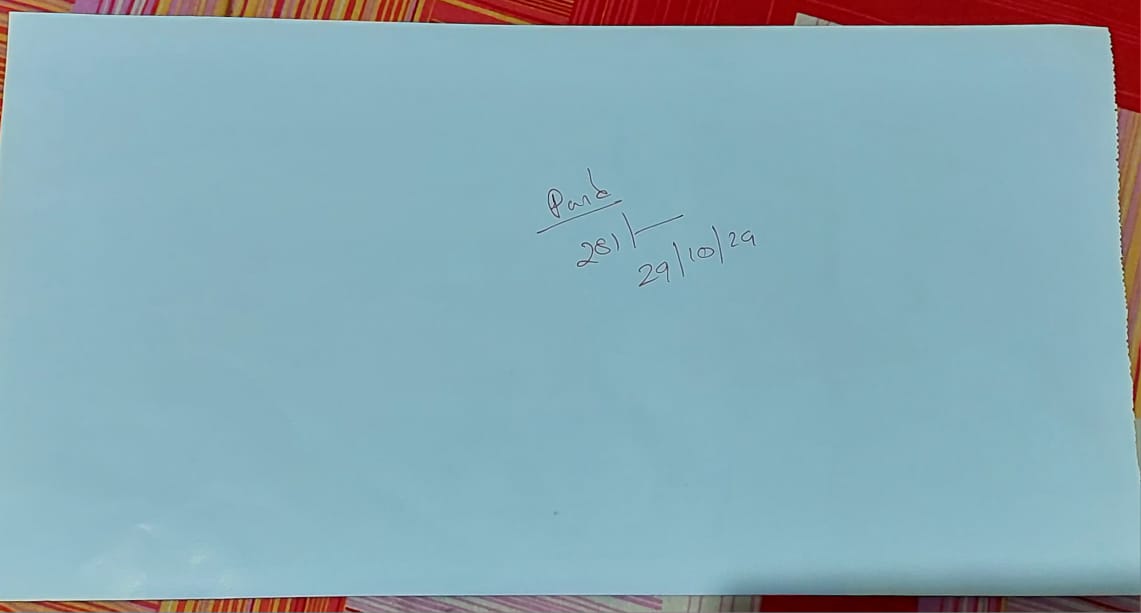 Paid
281/-
29/10/29